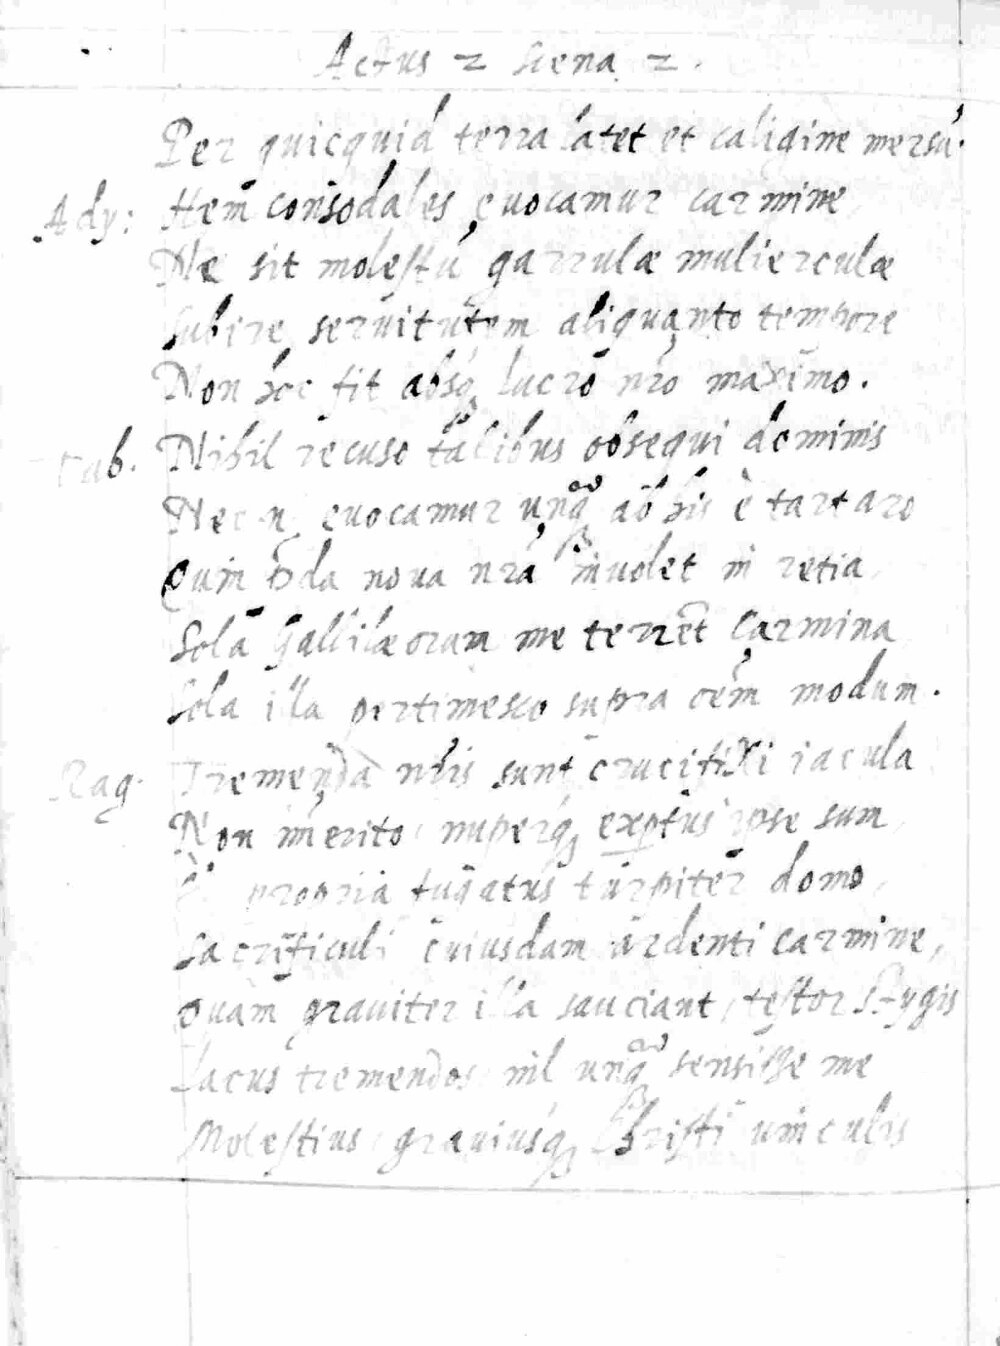 Actus 2 scena 2.
Per quicquid terra latet et caligine mersū.
Ady: Hem consodales, evocamur carmine
Ne sit molestū garrulæ mulierculæ
Subire servitutem aliquanto tempore
Non hoc fit absq̨ lucro nr̄o maximo.
Cub. Nihil recuso talibus obsequi dominis
Nec n̄ evocamur unq̄ ab his è tartaro
Quin p̄da nova nr̄a involet in retia
Sola Gallilæorum me terrēt carmina
Sola illa pertimesco supra oēm modum.
Rag. Tremenda nobis sunt crucifixi iacula
Non īmerito, nuperq̨ exptus ipse sum
È propria fugatus turpiter domo,
Sacrificuli cuiusdam ardenti carmine,
Quam graviter illa sauciant, testor stygis
Lacus tremendos, nil unq̄ sensisse me
Molestius, graviusq̨ Christi vinculis